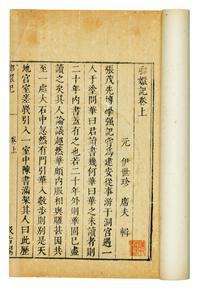 嬛記卷上
元 伊世珍 席夫 輯
張茂先博學強記嘗為建安從事游于洞宮遇一
人于塗問華曰君讀書幾何華曰華之未讀者則
二十年內書蓋有之也若二十年外則華固已盡
讀之矣其人論議超然華頗內服相與驩甚因共
至一處大石中忽然有門引華入數步則別是天
地宮室嵯峨引入一室中陳書滿架其人曰此歷
卷上